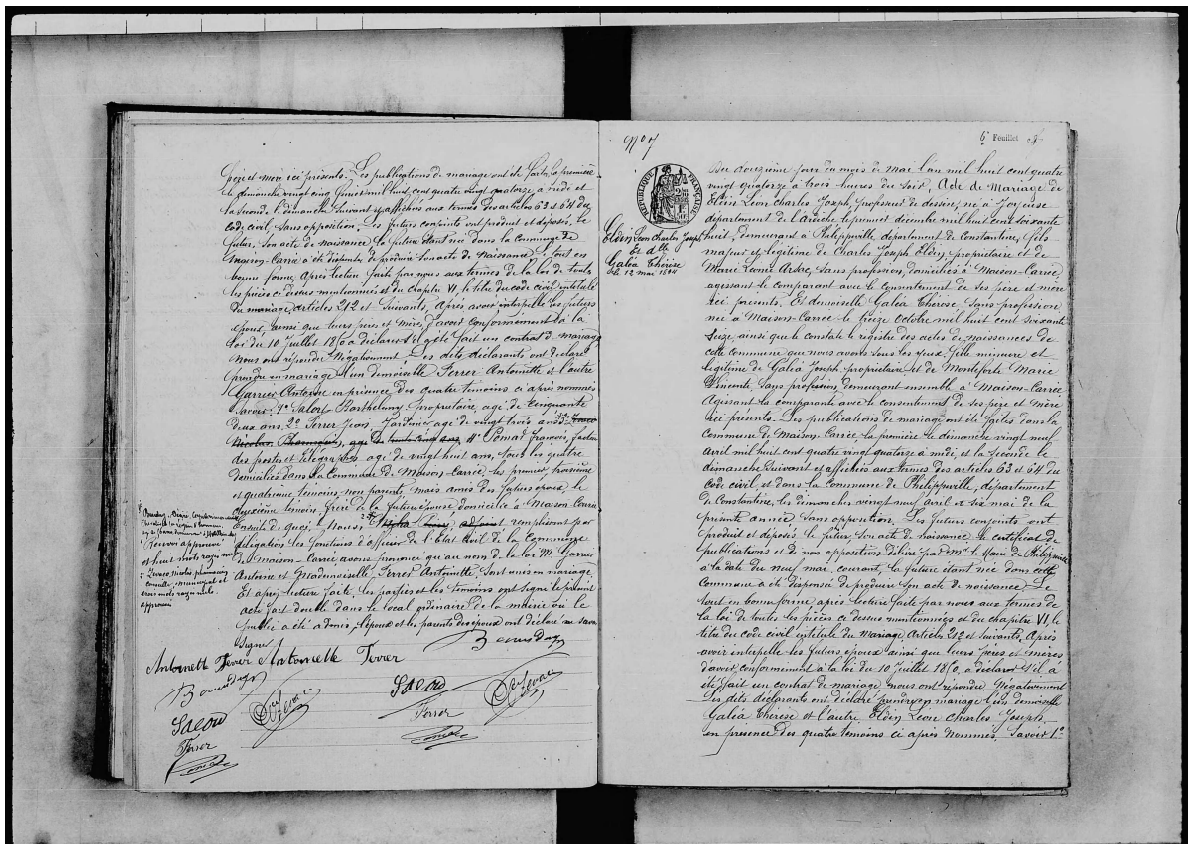 père et mère ici présents. Les publications de mariage ont été faites, la première
le dimanche vingt cinq mil huit cent quatre vingt quatorze à midi et
la seconde le dimanche suivant et affichés aux termes des articles 63 et 64 du
code civil, sans opposition. Les futurs conjoints ont produit et déposé, le
futur, son acte de naissance la future étant née dans la commune de
Maison-Carrée a été dispensée de produire son acte de naissance. Le tout en
bonne forme, après lecture faite par nous aux termes de la loi de toutes
les pièces ci dessus mentionnées et du chapitre VI, le titre du code civil intitulé
du mariage, articles 212 et suivants, après avoir interpellé les futurs
époux, ainsi que leurs pères et mères, d'avoir conformément à la
loi du 10 Juillet 1850 a déclarer s'il a été fait un contrat de mariage
nous ont répondu Négativement. Les dits déclarants ont déclaré
prendre en mariage l'un demoiselle Ferrer Antoinette et l'autre
Garnier Antoine en présence des quatre témoins ci après nommés
Savoir: 1° Salord Barthélemy propriétaire agé de cinquante
deux ans, 2° Ferrer Jean, Jardinier agé de vingt trois ans 3°
Nicolas, agé de 4° Pomar François, facteur
des postes et télégraphes agé de vingt huit ans, tous les quatre
domiciliés dans la Commune de Maison-Carrée, les premier, troisième
et quatrième témoins non parents, mais amis des futurs époux, le
deuxième témoin, frère de la future épouse domicilié à Maison-Carrée
Ensuite de quoi, Nous remplissant par
délégation les fonctions d'officier de l'Etat Civil de la Commune
de Maison-Carrée avons prononcé qu'au nom de la loi Mr Garnier
Antoine et Mademoiselle Ferrer Antoinette, sont unis en mariage
Et après lecture faite, les parties et les témoins ont signé le présent
acte fait double dans le local ordinaire de la mairie ou le
public a été admis, l'époux et les parents des époux ont déclaré ne savoir
signer
renvoi approuvé
et huit mots rayés nuls
approuvés
Antoinette Ferrer Antoinette Ferrer
Salord
Ferrer
Salord
Ferrer
N° 7
6e Feuillet
RÉPUBLIQUE FRANÇAISE
Eldin Léon Charles Joseph
Et dlle
Galéa Thérèse
le 12 mai 1894
Du douzième jour du mois de Mai l'an mil huit cent quatre
vingt quatorze à trois heures du soir, Acte de Mariage de
Eldin Léon Charles Joseph, professeur de dessin, né à Joyeuse
département de l'Ardèche le premier décembre mil huit cent soixante
huit, demeurant à Philippville département de Constantine, fils
majeur et légitime de Charles Joseph Eldin, propriétaire et de
Marie Léonie sans profession, domiciliés à Maison-Carrée,
agissant le comparant avec le consentement de ses père et mère
ici présents. Et demoiselle Galéa Thérèse sans profession
née à Maison-Carrée le treize Octobre mil huit cent soixante
seize ainsi que le constate le registre des actes de naissances de
cette commune que nous avons sous les yeux, fille mineure et
légitime de Galéa Joseph, propriétaire et de Monteforte Marie
Vincente, sans profession demeurant ensemble à Maison-Carrée
Agissant la comparante avec le consentement de ses père et mère
ici présents. Les publications de mariage ont été faites dans la
Commune de Maison-Carrée, la première le dimanche vingt neuf
Avril mil huit cent quatre vingt quatorze à midi et la seconde le
dimanche suivant et affichés aux termes des articles 63 et 64 du
code civil et dans la Commune de Philippville, département
de Constantine, les dimanches vingt neuf avril et six mai de la
présente année, sans opposition. Les futurs conjoints ont
produit et déposé, le futur, son acte de naissance le certificat de
publications et de non opposition délivré par Mr le Maire de Philippville
à la date du neuf mai, courant, la future étant née dans cette
Commune a été dispensée de produire son acte de naissance. Le
tout en bonne forme après lecture faite par nous aux termes de
la loi de toutes les pièces ci dessus mentionnées et du chapitre VI, le
titre du code civil intitulé du Mariage, Articles 212 et suivants, Après
avoir interpellé les futurs époux ainsi que leurs pères et mères
d'avoir, conformément à la loi du 10 Juillet 1850, a déclarer s'il a
été fait un contrat de mariage nous ont répondu Négativement
Les dits déclarants ont déclaré prendre en mariage l'un demoiselle
Galéa Thérèse et l'autre Eldin Léon Charles Joseph
en présence des quatre témoins ci après nommés. Savoir 1°